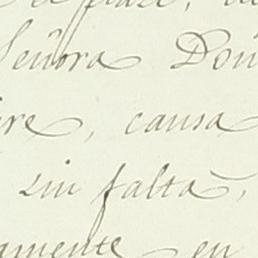 Señora Doñ
re, causa
sin falta,
amente en